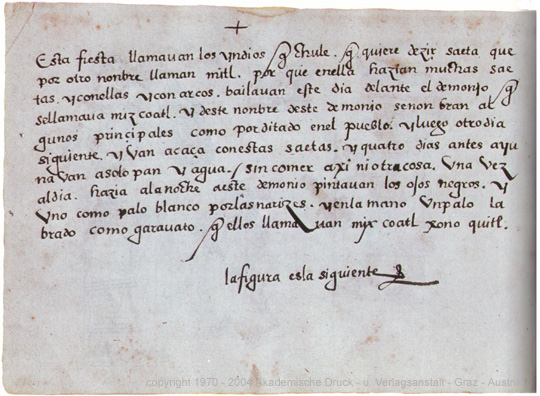 +
Esta fiesta llamavan los yndios q̃chule. q̃ quiere dezir saeta que
por otro nonbre llaman mitl. por que enella hazian muchas sae
tas. y conellas y con arcos. bailavan este dia delante el demonio q̃
sellamava mixcoatl. y deste nombre deste demonio senonbran al
gunos principales como por ditado enel pueblo. y luego otro dia
siguiente. yvan acaça conestas saetas. y quatro dias antes ayu
navan asolo pan y agua./ sin comer axi ni otra cosa. una vez
al dia. hazia ala noche a este demonio pintavan los ojos negros. y
uno como palo blanco por las narizes. y enla mano un palo la
brado como garavato. q̃ ellos llamavan mixcoatl xono quitl.
la figura es la siguiente
copyright 1970 - 2004 Akademische Druck - u. Verlagsanstalt - Graz - Austria